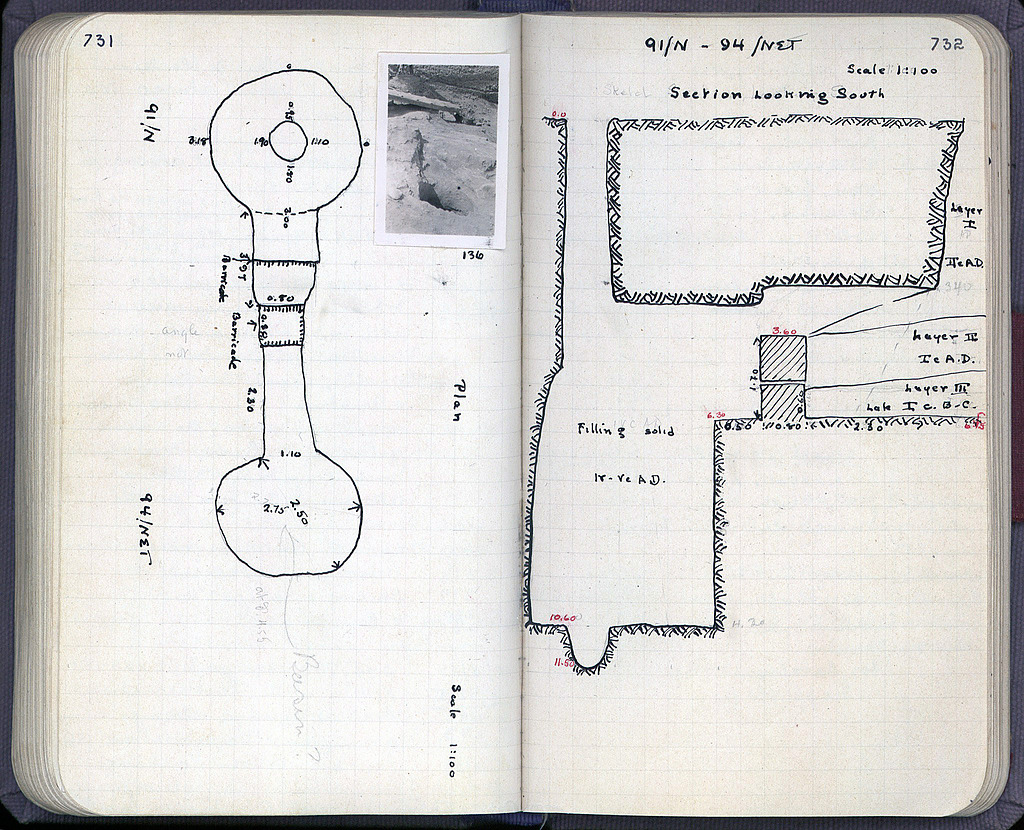 731
91/N
0.95
1.90
1.10
1.30
3.00
Barricade
0.80
0.80
Barricade
angle
not
2.30
1.10
2.75
2.50
94/NET
Basin?
136
Plan
Scale 1:100
732
91/N - 94/NET
Scale 1:100
Sketch
Section Looking South
0.0
Layer
I
II c A.D.
340
3.60
Layer II
I c A.D.
Layer III
Late I c. B.C.
6.30
0.50
0.80
2.30
Filling solid
IV-V c A.D.
10.60
11.50